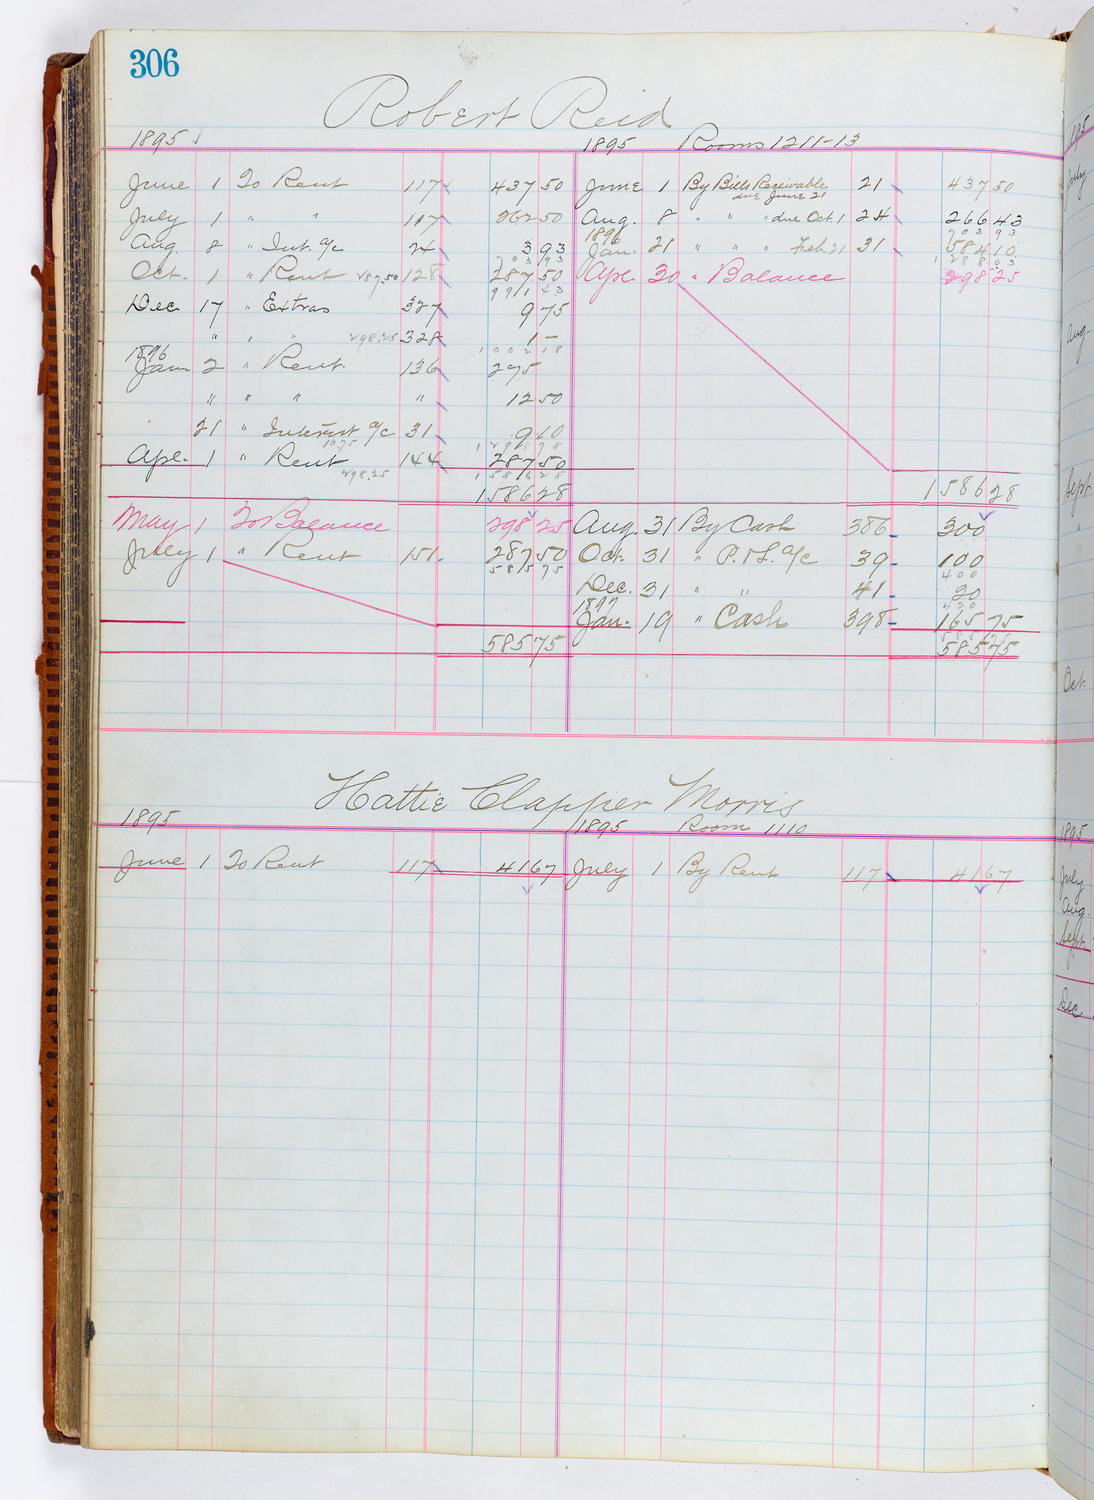 306
Robert Reid
1895 1895 Rooms 1211-13
June 1 To Rent 117 437 50 June 1 By Bills Receivable 21 437 50
due June 21
July 1 " " 117 262 50 Aug. 8 " " " due Oct 1 24 266 43
703 93
Aug 8 " Int. a/c 24 3 93 1896 Jan. 21 " " " Feb 21 31 584 10
703 93 1288 03
Oct. 1 " Rent 287.50 128 287 50 Apr. 30 " Balance 298 25
991 43
Dec 17 " Extras 327 9 75
" " " 298.25 328 1 -
1002 18
1896
Jan 2 " Rent 136 275
" " " " 12 50
21 " Interest a/c 31 9 10
10.75 1298 78
Apr. 1 " Rent 144 287 50
298.25 1586 28
1586 28 1586 28
May 1 To Balance 298 25 Aug. 31 By Cash 386 300
July 1 " Rent 151 287 50 Oct. 31 " P. & L. a/c 39 100
585 75 400
Dec. 31 " " 41 20
420
1897
Jan. 19 " Cash 398 165 75
585 75
585 75 585 75
Hattie Clapper Morris
1895 1895 Room 1110
June 1 To Rent 117 41 67 July 1 By Rent 117 41 67
1895
July
Aug.
Sept.
Oct.
1895
July
Aug.
Sept.
Dec.